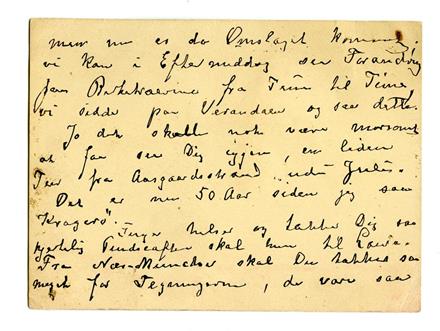 men nu er da Omslaget kommen,
vi kan i Eftermiddag see Forandring
paa Birketræerne fra Time til Time,
vi sidde paa Verandaen og see dette.
Jo det skal nok være morsomt
at faa see Dig igjen, en liden
Tour fra Aasgaardstrand
Det er nu 50 Aar siden jeg saa
"Kragerø".
Inger hilser og takker Dig saa
hjertelig skal hun til
Fra skal Du takkes saa
meget for Tegningerne, de vare saa